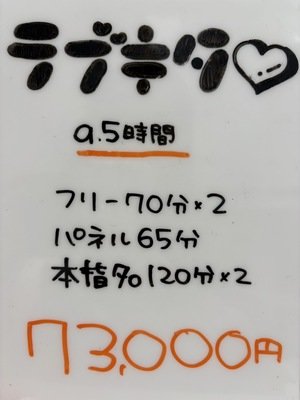 ラブキタ♡
9.5時間
フリー70分×2
パネル65分
本指名120分×2
73,000円